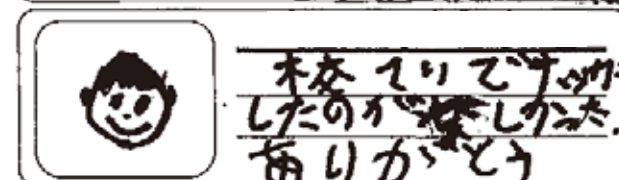 校ていでサッカ
したのが楽しかった.
ありがとう